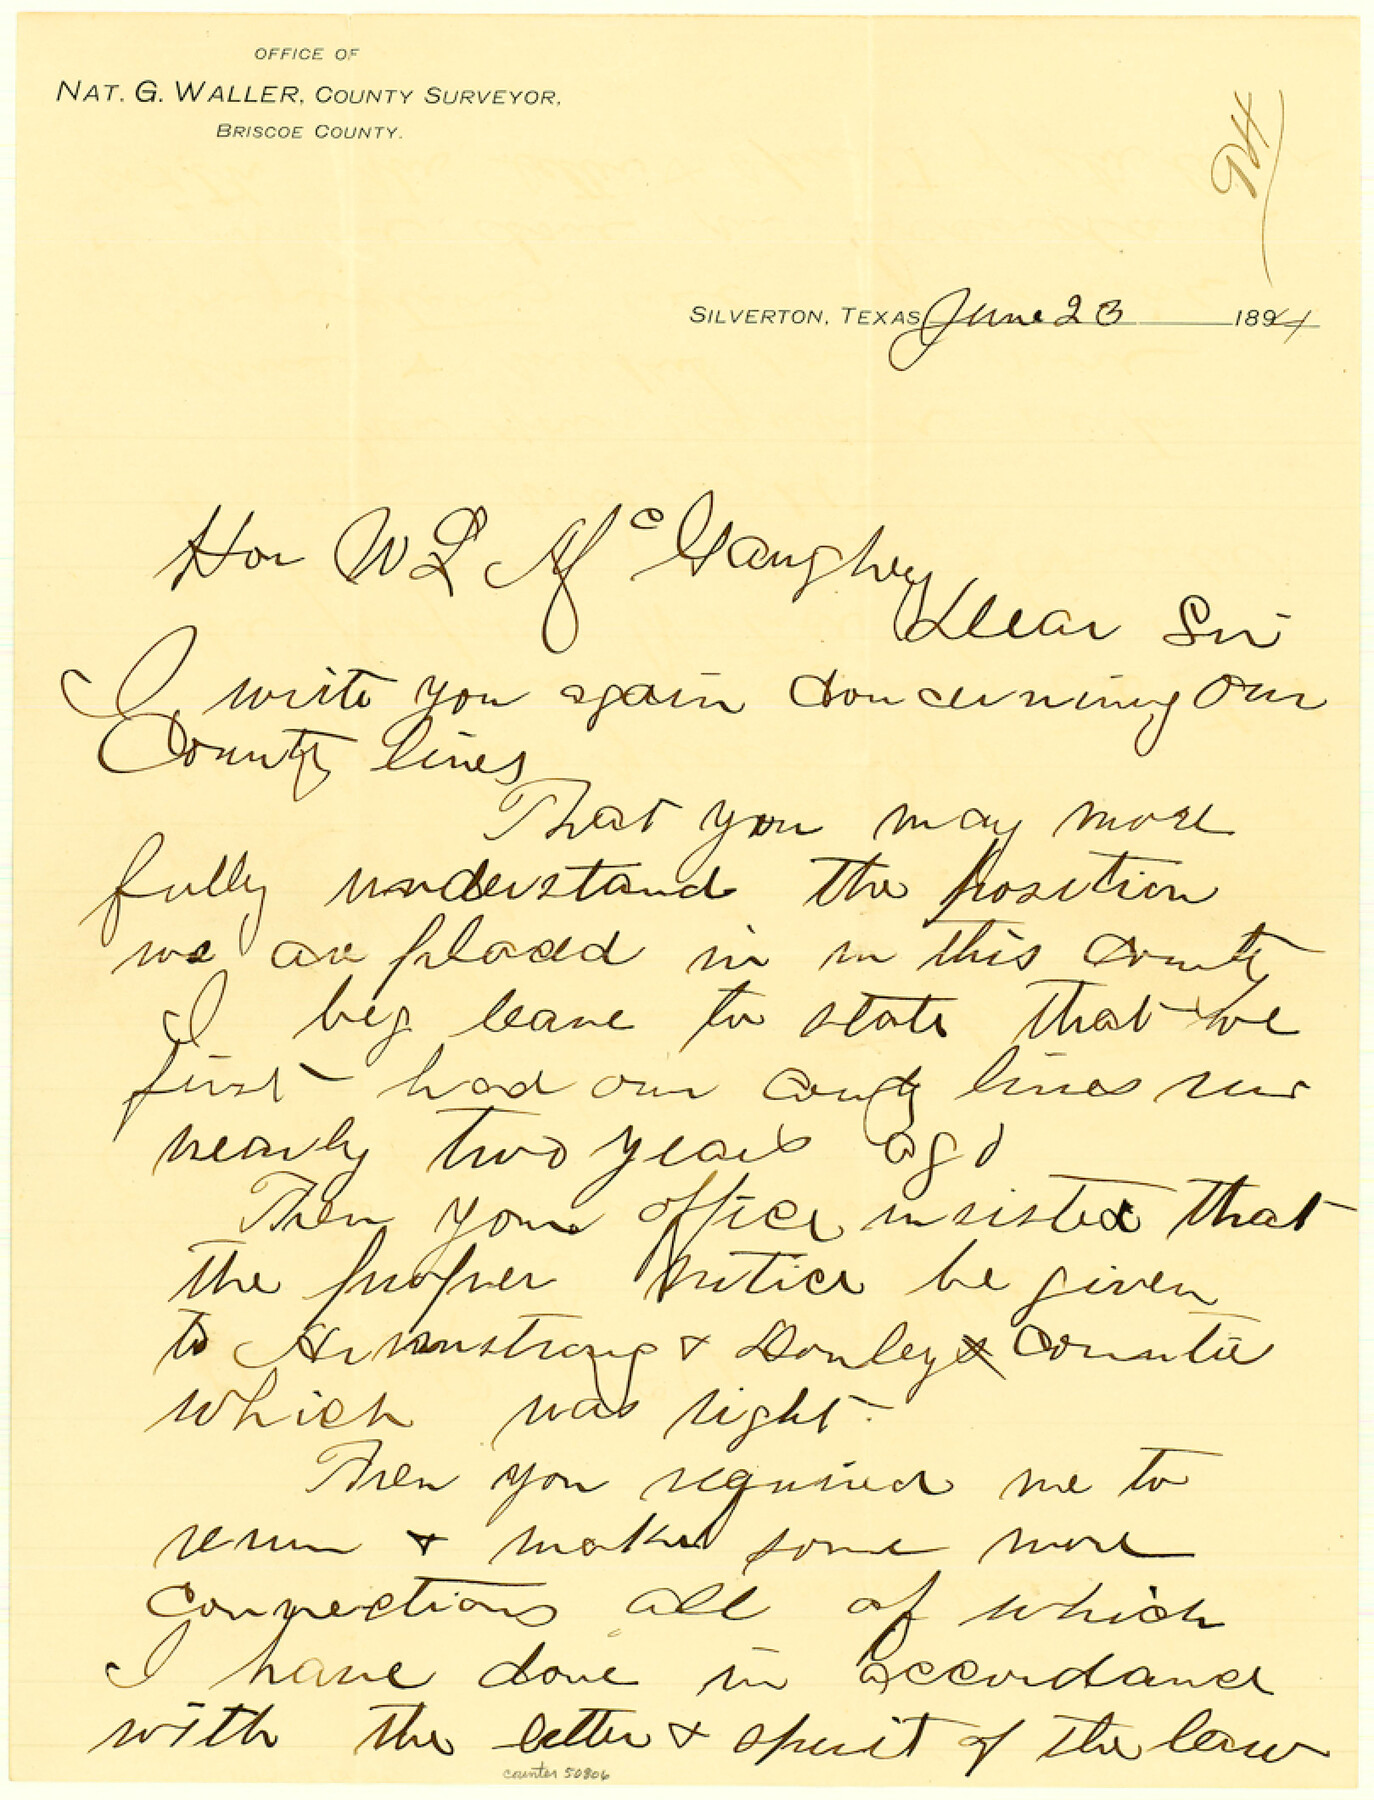 OFFICE OF
NAT. G. WALLER, COUNTY SURVEYOR,
BRISCOE COUNTY.
SILVERTON, TEXAS June 23 1894
Hon W L McGaughey
Dear Sir
I write you again concerning our
County lines
That you may more
fully understand the position
we are placed in in this County
I beg leave to state that we
first had our county lines run
nearly two years ago
Then your office insisted that
the proper notice be given
to Armstrong & Donley Countie
which was right.
Then you required me to
rerun & make some more
connections all of which
I have done in accordance
with the letter & spirit of the law
counter 50806